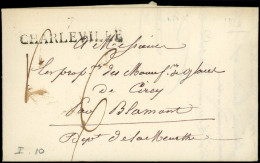 CHARLEVILLE
A Messieurs
Les prop.res des Manuf.es de glaces
de Cirey
Par Blamont
Dep.t de la Meurthe
I 10